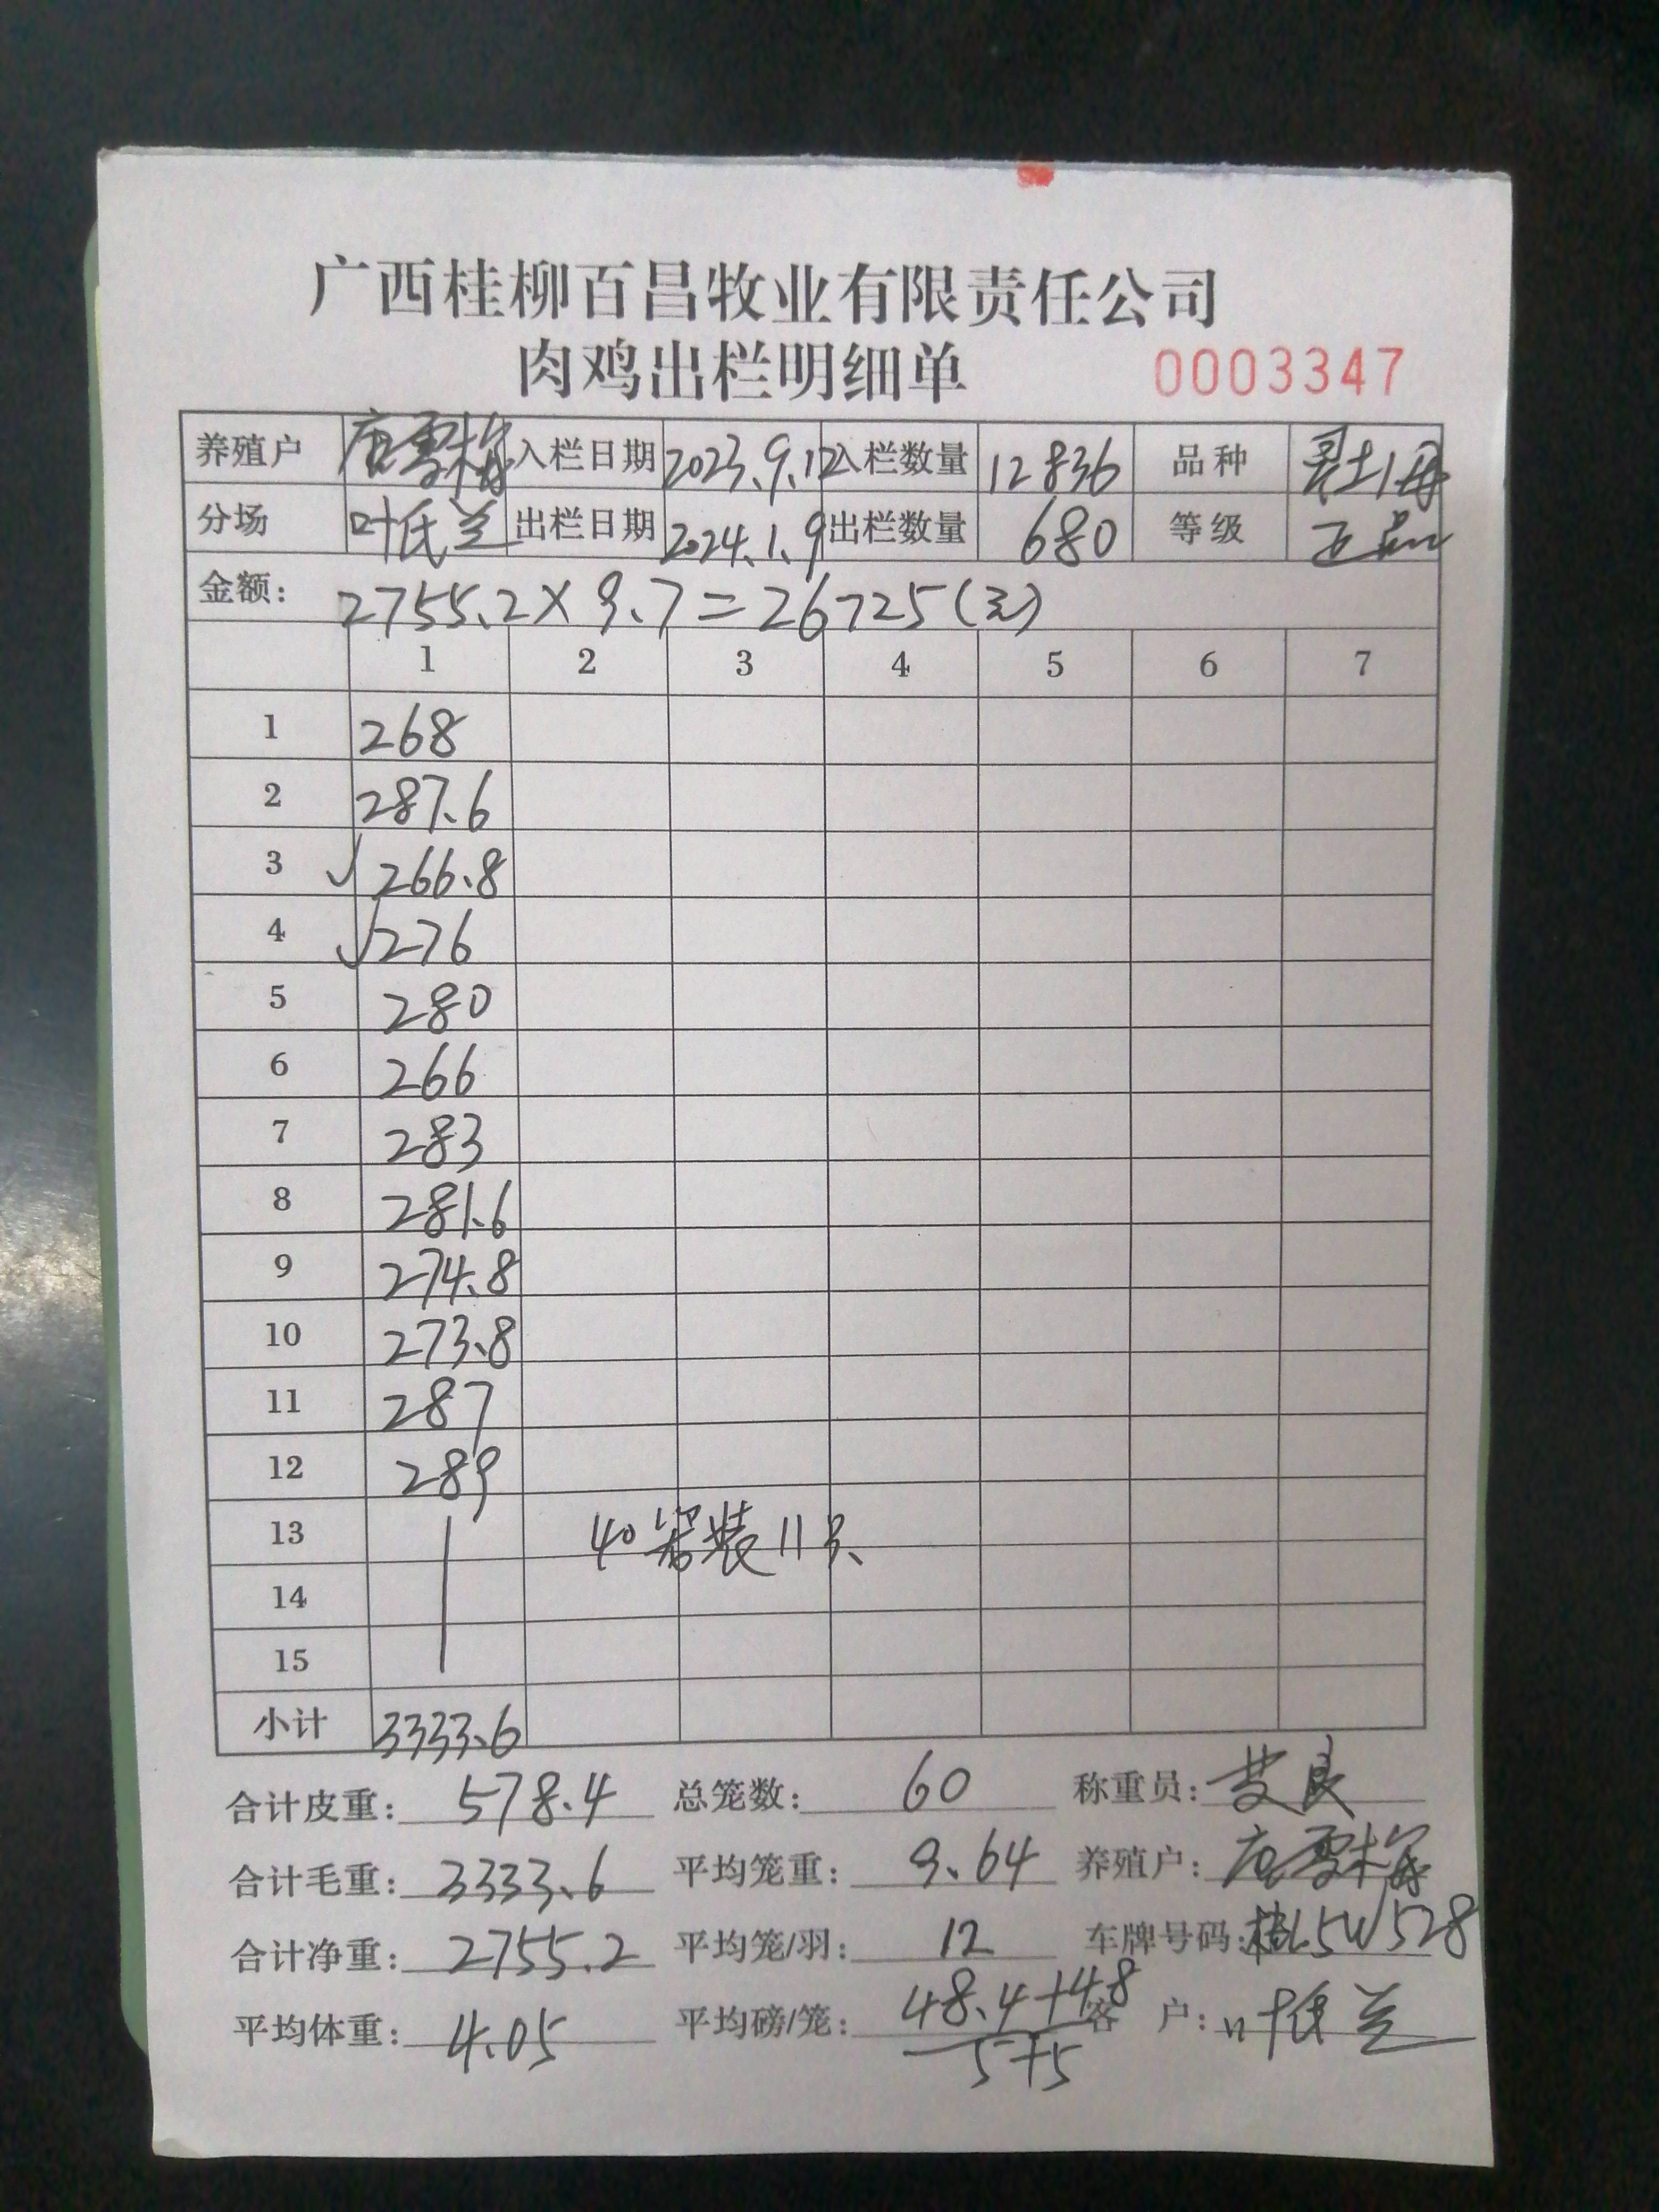 广西桂柳百昌牧业有限责任公司
肉鸡出栏明细单 0003347
养殖户 唐雪梅 入栏日期 2023.9.12 入栏数量 12836 品种 灵土1母
分场 叶氏兰 出栏日期 2024.1.9 出栏数量 680 等级 正品
金额: 2755.2×9.7=26725(元)
1 2 3 4 5 6 7
1 268
2 287.6
3 √ 266.8
4 √ 276
5 280
6 266
7 283
8 281.6
9 274.8
10 273.8
11 287
12 289
13 40笼装11只
14
15
小计 3333.6
合计皮重: 578.4 总笼数: 60 称重员: 艾良
合计毛重: 3333.6 平均笼重: 9.64 养殖户: 唐雪梅
合计净重: 2755.2 平均笼/羽: 12 车牌号码: 桂L5W528
平均体重: 4.05 平均磅/笼: 48.4+48 客 户: 叶氏兰
5+5